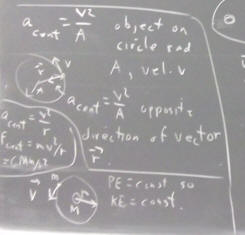 a_cent = V²/A object on
circle rad
A, vel. v
r V
a_cent = V²/A opposite
direction of vector
r
a_cent = v²/r
F_cent = mv²/r
= GMm/r²
V m
r
M
PE = const. so
KE = const.